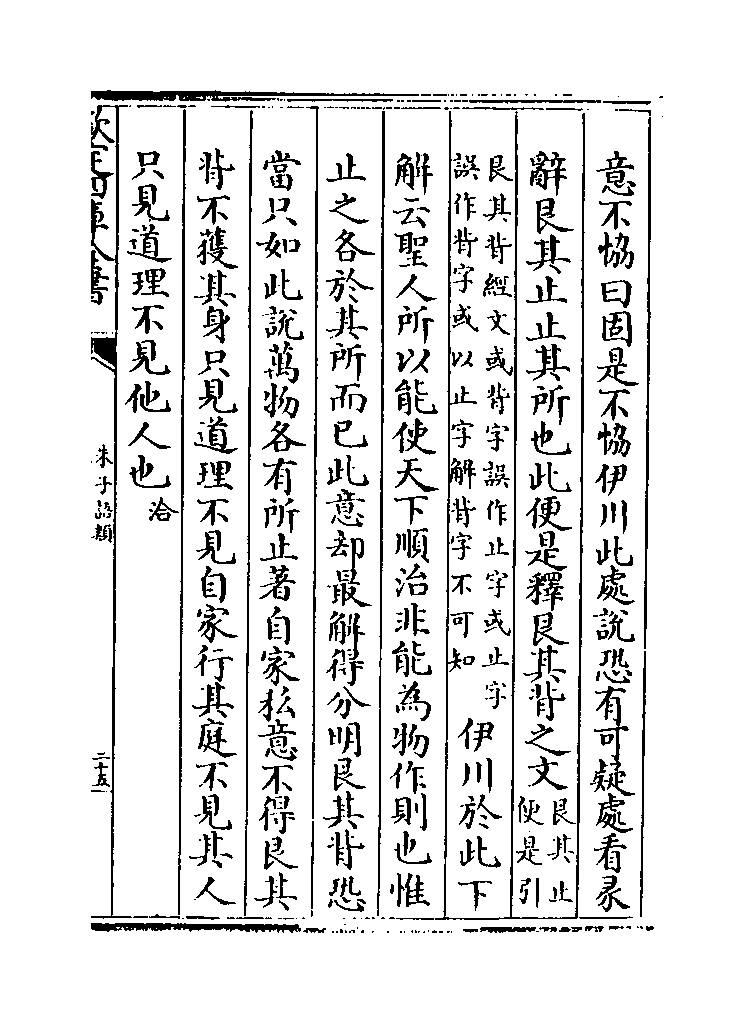 意不恊曰固是不恊伊川此處說恐有可疑處看彖
辭艮其止止其所也此便是釋艮其背之文艮其止
便是引
艮其背經文或背字誤作止字或止字
誤作背字或以止字解背字不可知
伊川於此下
解云聖人所以能使天下順治非能為物作則也惟
止之各於其所而已此意却最解得分明艮其背恐
當只如此說萬物各有所止著自家私意不得艮其
背不獲其身只見道理不見自家行其庭不見其人
只見道理不見他人也洽
欽定四庫全書
朱子語類
二十五